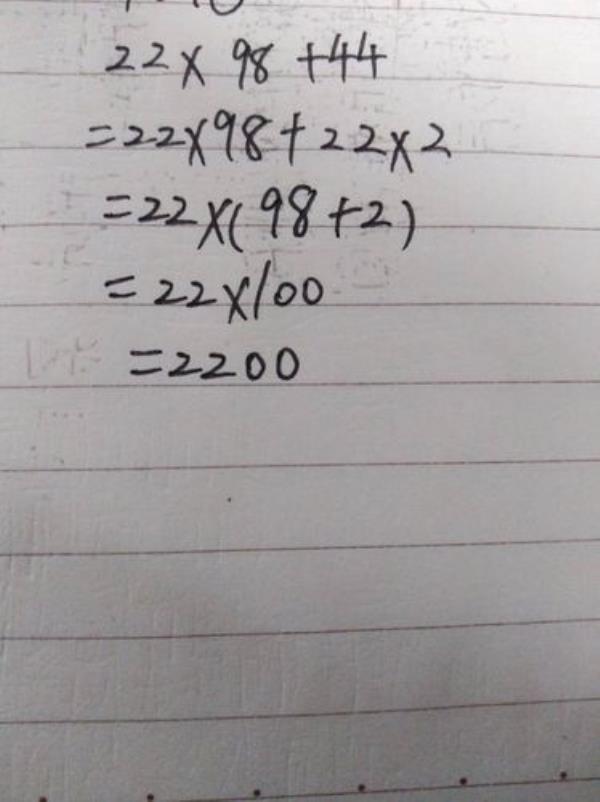 22×98+44
=22×98+22×2
=22×(98+2)
=22×100
=2200